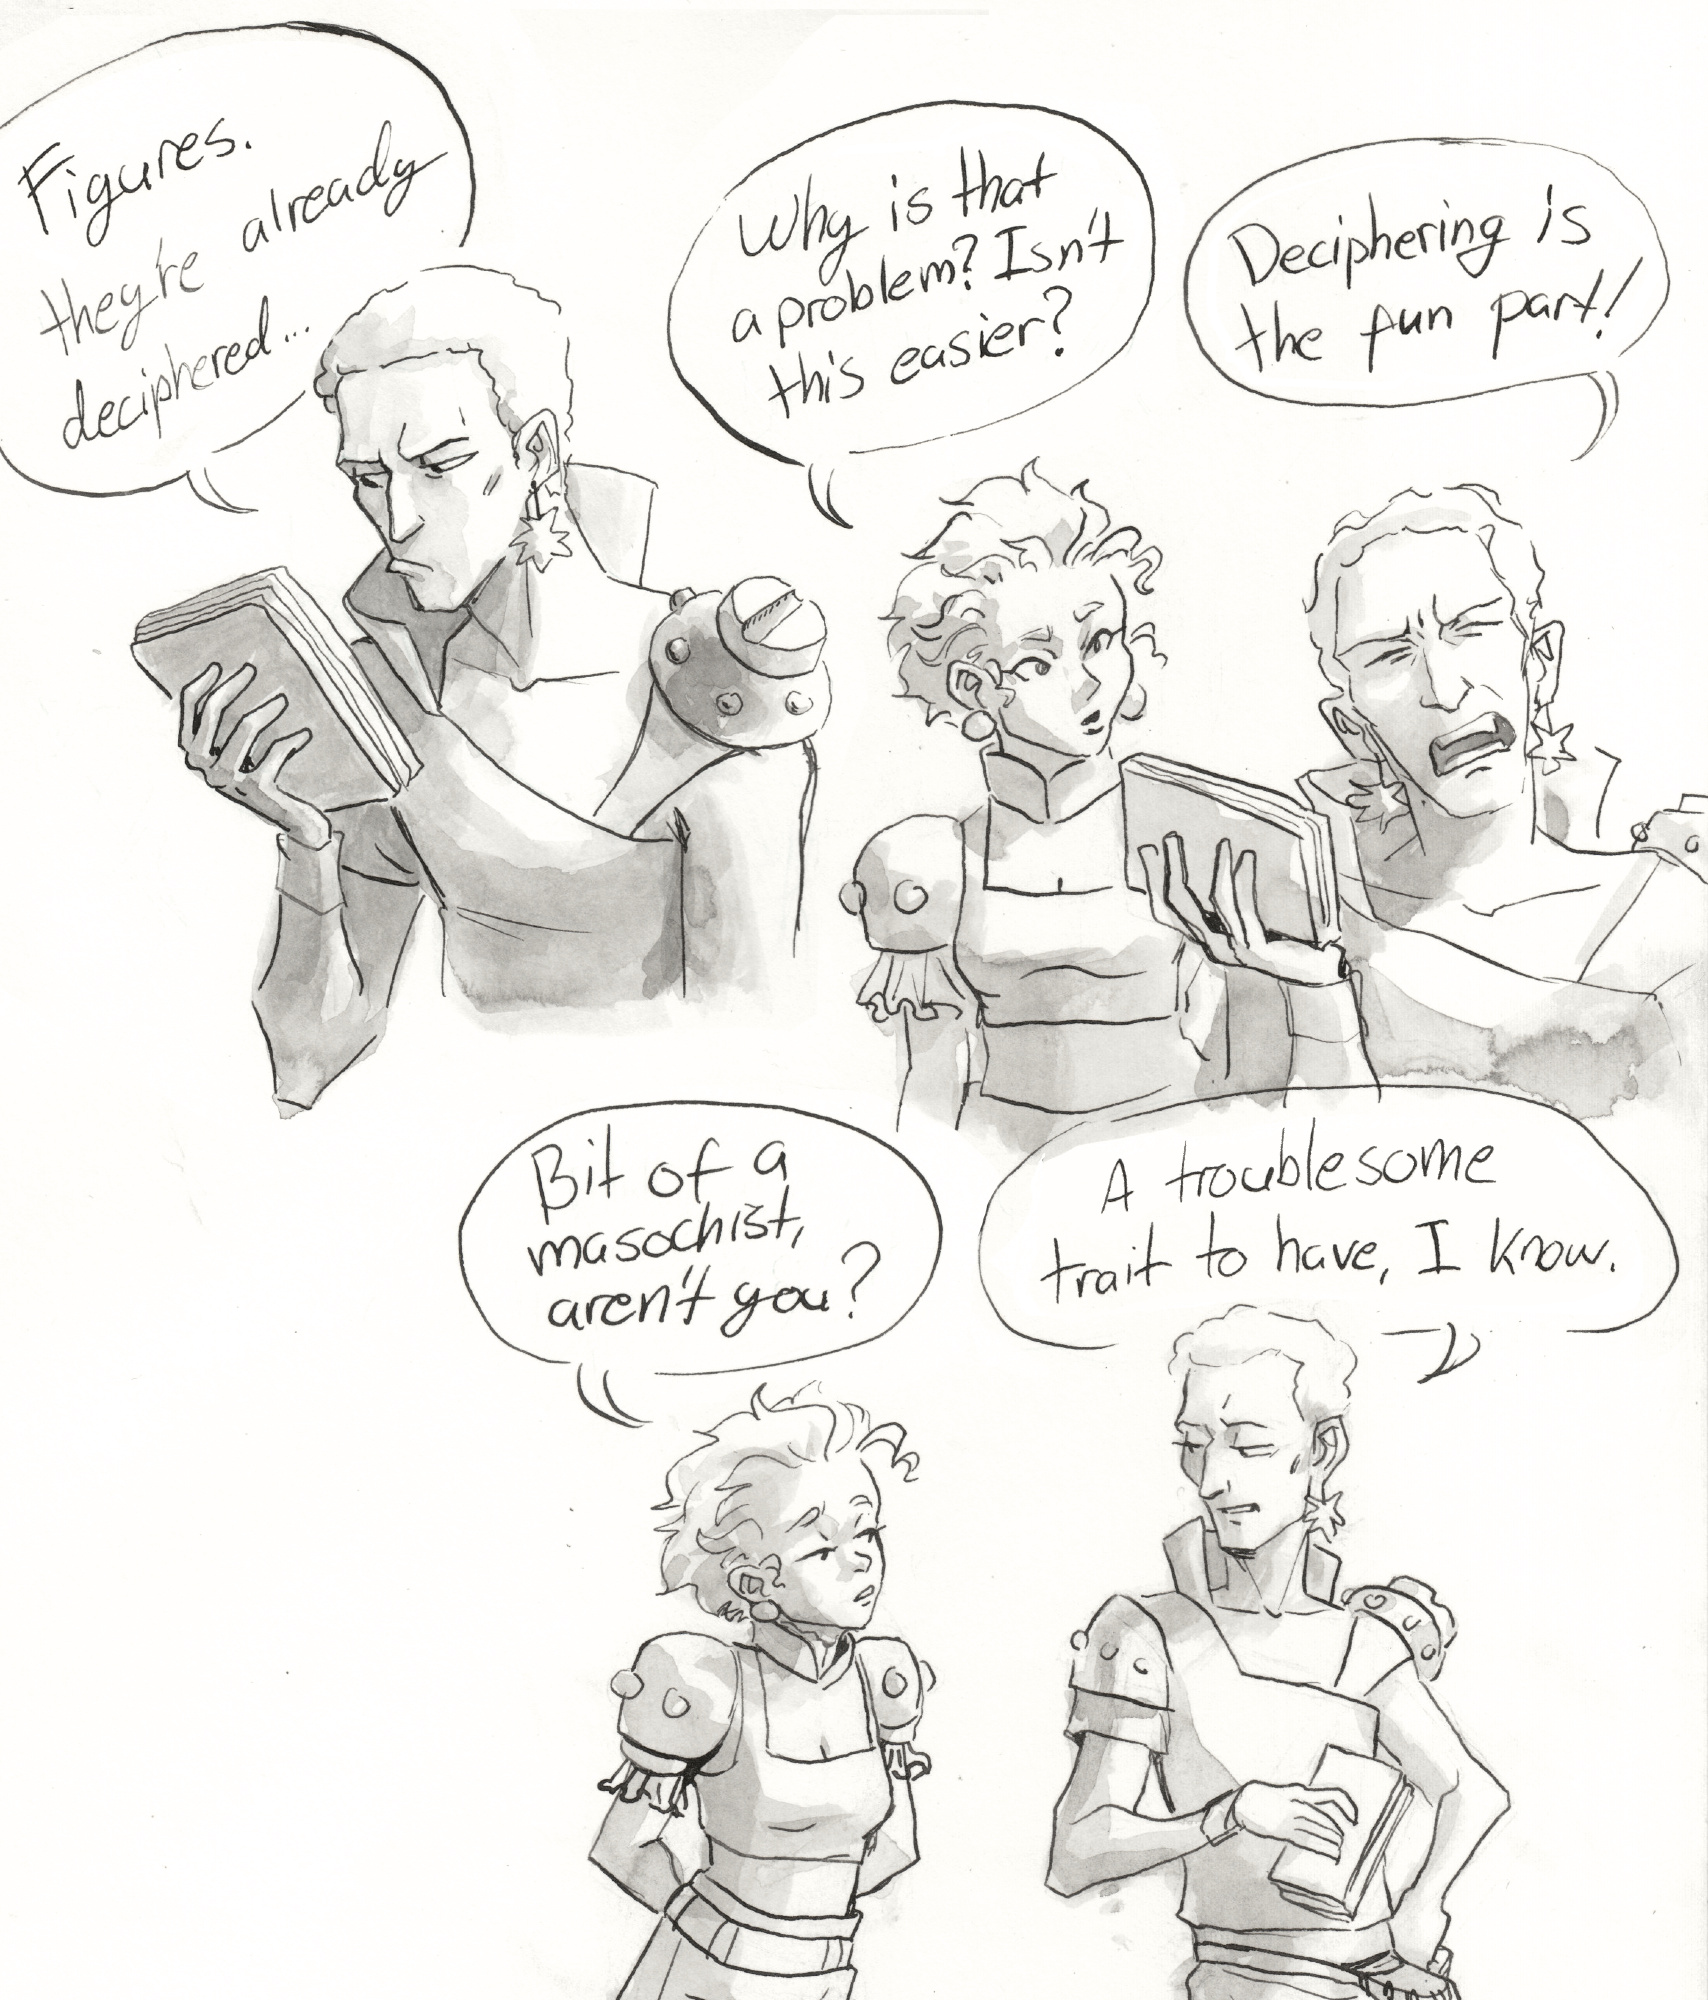 Figures.
they're already
deciphered...
Why is that
a problem? Isn't
this easier?
Deciphering is
the fun part!
Bit of a
masochist,
aren't you?
A troublesome
trait to have, I know.